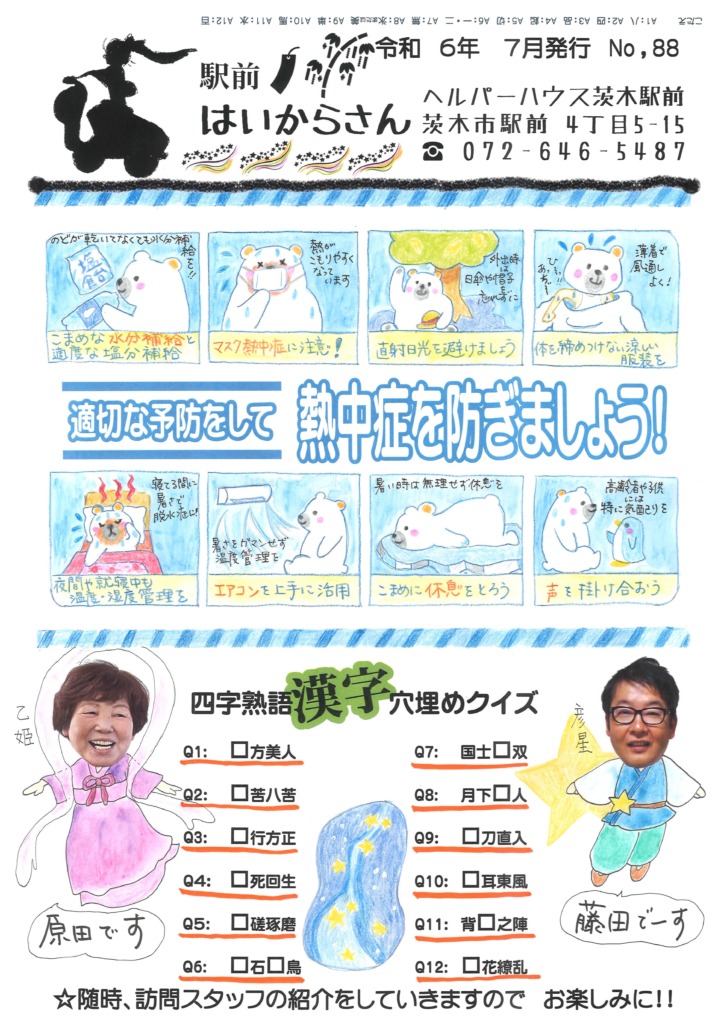 こたえ A1:八 A2:四 A3:品 A4:起 A5:切 A6:一・二 A7:無 A8:氷または美 A9:単 A10:馬 A11:水 A12:百
令和 6年 7月発行 No,88
駅前
はいからさん
ヘルパーハウス茨木駅前
茨木市駅前 4丁目5-15
☎ 072-646-5487
のどが乾いてなくても水分補給を!!
塩飴
こまめな水分補給と
適度な塩分補給
熱が
こもりやすく
なって
います
マスク熱中症に注意!
外出時は
日傘や帽子を
忘れずに
直射日光を避けましょう
薄着で
風通し
よく!
体を締めつけない涼しい
服装を
適切な予防をして 熱中症を防ぎましょう!
寝てる間に
暑さで
脱水症に!
夜間や就寝中も
温度・湿度管理を
暑さをガマンせず
温度管理を
エアコンを上手に活用
暑い時は無理せず休息を
こまめに休息をとろう
高齢者や子供
には
特に気配りを
声を掛け合おう
四字熟語漢字穴埋めクイズ
乙姫
彦星
Q1: □方美人
Q2: □苦八苦
Q3: □行方正
Q4: □死回生
Q5: □磋琢磨
Q6: □石□鳥
Q7: 国士□双
Q8: 月下□人
Q9: □刀直入
Q10: □耳東風
Q11: 背□之陣
Q12: □花繚乱
原田です
藤田でーす
☆随時、訪問スタッフの紹介をしていきますので お楽しみに!!